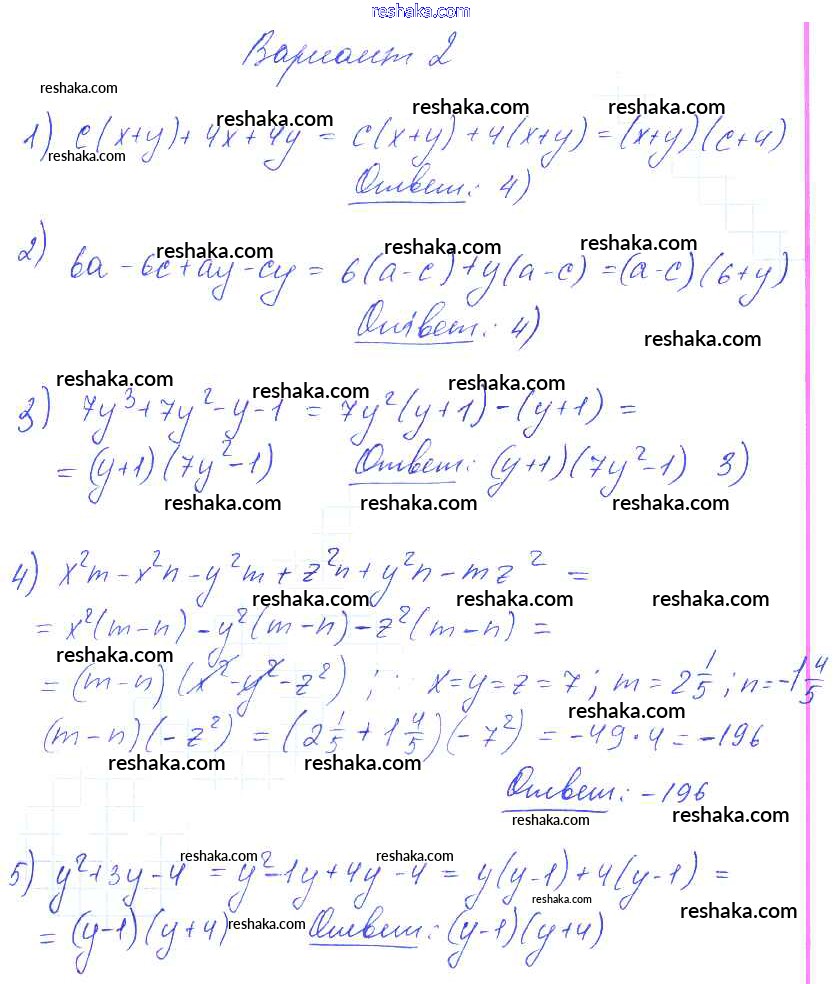 reshaka.com
Вариант 2
reshaka.com
reshaka.com reshaka.com reshaka.com
1) c(x+y)+4x+4y = c(x+y)+4(x+y)=(x+y)(c+4)
reshaka.com
Ответ: 4)
reshaka.com reshaka.com reshaka.com
2) 6a-6c+ay-cy = 6(a-c)+y(a-c)=(a-c)(6+y)
Ответ: 4)
reshaka.com
reshaka.com reshaka.com reshaka.com
3) 7y³+7y²-y-1 = 7y²(y+1)-(y+1) =
= (y+1)(7y²-1) Ответ: (y+1)(7y²-1) 3)
reshaka.com reshaka.com reshaka.com
4) x²m-x²n-y²m+z²n+y²n-mz² =
reshaka.com reshaka.com reshaka.com
= x²(m-n)-y²(m-n)-z²(m-n) =
reshaka.com
= (m-n)(x²-y²-z²); x=y=z=7; m=2 1/5; n=-1 4/5
reshaka.com
(m-n)(-z²) = (2 1/5 + 1 4/5)(-7²) = -49·4 = -196
reshaka.com reshaka.com
Ответ: -196
reshaka.com reshaka.com
reshaka.com reshaka.com
5) y²+3y-4 = y²-1y+4y-4 = y(y-1)+4(y-1) =
reshaka.com reshaka.com
= (y-1)(y+4) Ответ: (y-1)(y+4)
reshaka.com